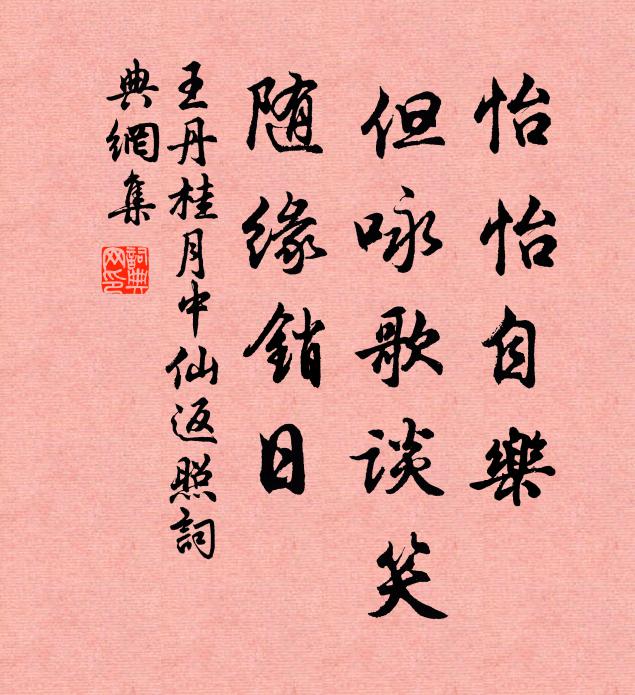 怡怡自樂
但咏歌談笑
随緣銷日
王丹桂月中仙返照詞
典網集
詞典網印